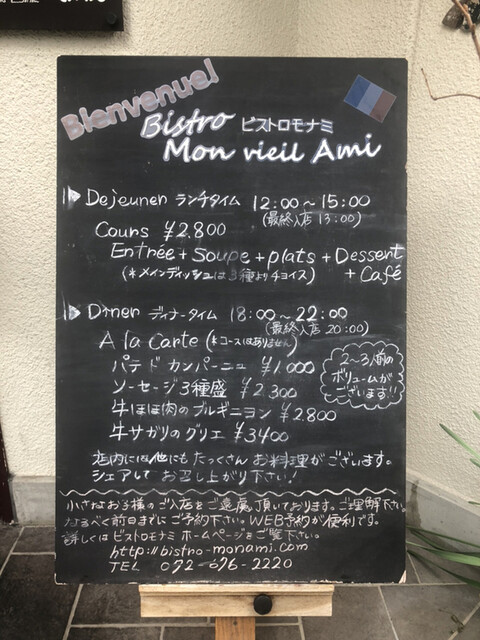 Bienvenue!
Bistro ビストロモナミ
Mon vieil Ami
Dejeunen ランチタイム 12:00~15:00
(最終入店 13:00)
Cours ¥2.800
Entrée + Soupe + plats + Dessert
(*メインディッシュは3種よりチョイス) + Café
Dinen ディナータイム 18:00~22:00
(最終入店 20:00)
A la Carte (*コースはありません)
パテドカンパーニュ ¥1.000
ソーセージ3種盛 ¥2.300
牛ほほ肉のブルギニヨン ¥2.800
牛サガリのグリエ ¥3400
2~3人前の
ボリュームが
ございます!!
店内には他にもたっくさんお料理がございます。
シェアしてお召し上がり下さい!
小さなお子様のご入店をご遠慮頂いております。ご理解下さい。
なるべく前日までにご予約下さい。WEB予約が便利です。
詳しくはビストロモナミ ホームページをご覧下さい。
http://bistro-monami.com
TEL 072-676-2220